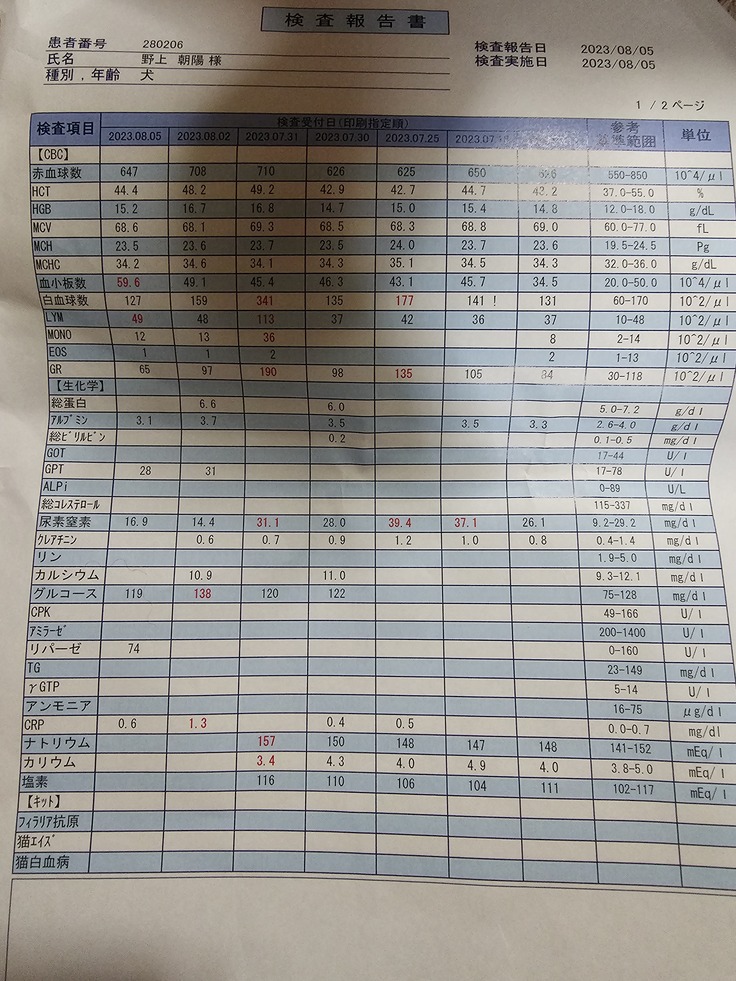 検査報告書
患者番号 280206
氏名 野上 朝陽 様
種別,年齢 犬
検査報告日 2023/08/05
検査実施日 2023/08/05
1 / 2 ページ
検査項目 検査受付日(印刷指定順) 参考基準範囲 単位
2023.08.05 2023.08.02 2023.07.31 2023.07.30 2023.07.25
【CBC】
赤血球数 647 708 710 626 625 650 550-850 10^4/μl
HCT 44.4 48.2 49.2 42.9 42.7 44.7 43.2 37.0-55.0 %
HGB 15.2 16.7 16.8 14.7 15.0 15.4 14.8 12.0-18.0 g/dL
MCV 68.6 68.1 69.3 68.5 68.3 68.8 69.0 60.0-77.0 fL
MCH 23.5 23.6 23.7 23.5 24.0 23.7 23.6 19.5-24.5 Pg
MCHC 34.2 34.6 34.1 34.3 35.1 34.5 34.3 32.0-36.0 g/dL
血小板数 59.6 49.1 45.4 46.3 43.1 45.7 34.5 20.0-50.0 10^4/μl
白血球数 127 159 341 135 177 141 ! 131 60-170 10^2/μl
LYM 49 48 113 37 42 36 37 10-48 10^2/μl
MONO 12 13 36 8 2-14 10^2/μl
EOS 1 1 2 2 1-13 10^2/μl
GR 65 97 190 98 135 105 84 30-118 10^2/μl
【生化学】
総蛋白 6.6 6.0 5.0-7.2 g/dl
アルブミン 3.1 3.7 3.5 3.5 3.3 2.6-4.0 g/dl
総ビリルビン 0.2 0.1-0.5 mg/dl
GOT 17-44 U/l
GPT 28 31 17-78 U/l
ALPi 0-89 U/L
総コレステロール 115-337 mg/dl
尿素窒素 16.9 14.4 31.1 28.0 39.4 37.1 26.1 9.2-29.2 mg/dl
クレアチニン 0.6 0.7 0.9 1.2 1.0 0.8 0.4-1.4 mg/dl
リン 1.9-5.0 mg/dl
カルシウム 10.9 11.0 9.3-12.1 mg/dl
グルコース 119 138 120 122 75-128 mg/dl
CPK 49-166 U/l
アミラーゼ 200-1400 U/l
リパーゼ 74 0-160 U/l
TG 23-149 mg/dl
γGTP 5-14 U/l
アンモニア 16-75 μg/dl
CRP 0.6 1.3 0.4 0.5 0.0-0.7 mg/dl
ナトリウム 157 150 148 147 148 141-152 mEq/l
カリウム 3.4 4.3 4.0 4.9 4.0 3.8-5.0 mEq/l
塩素 116 110 106 104 111 102-117 mEq/l
【キット】
フィラリア抗原
猫エイズ
猫白血病